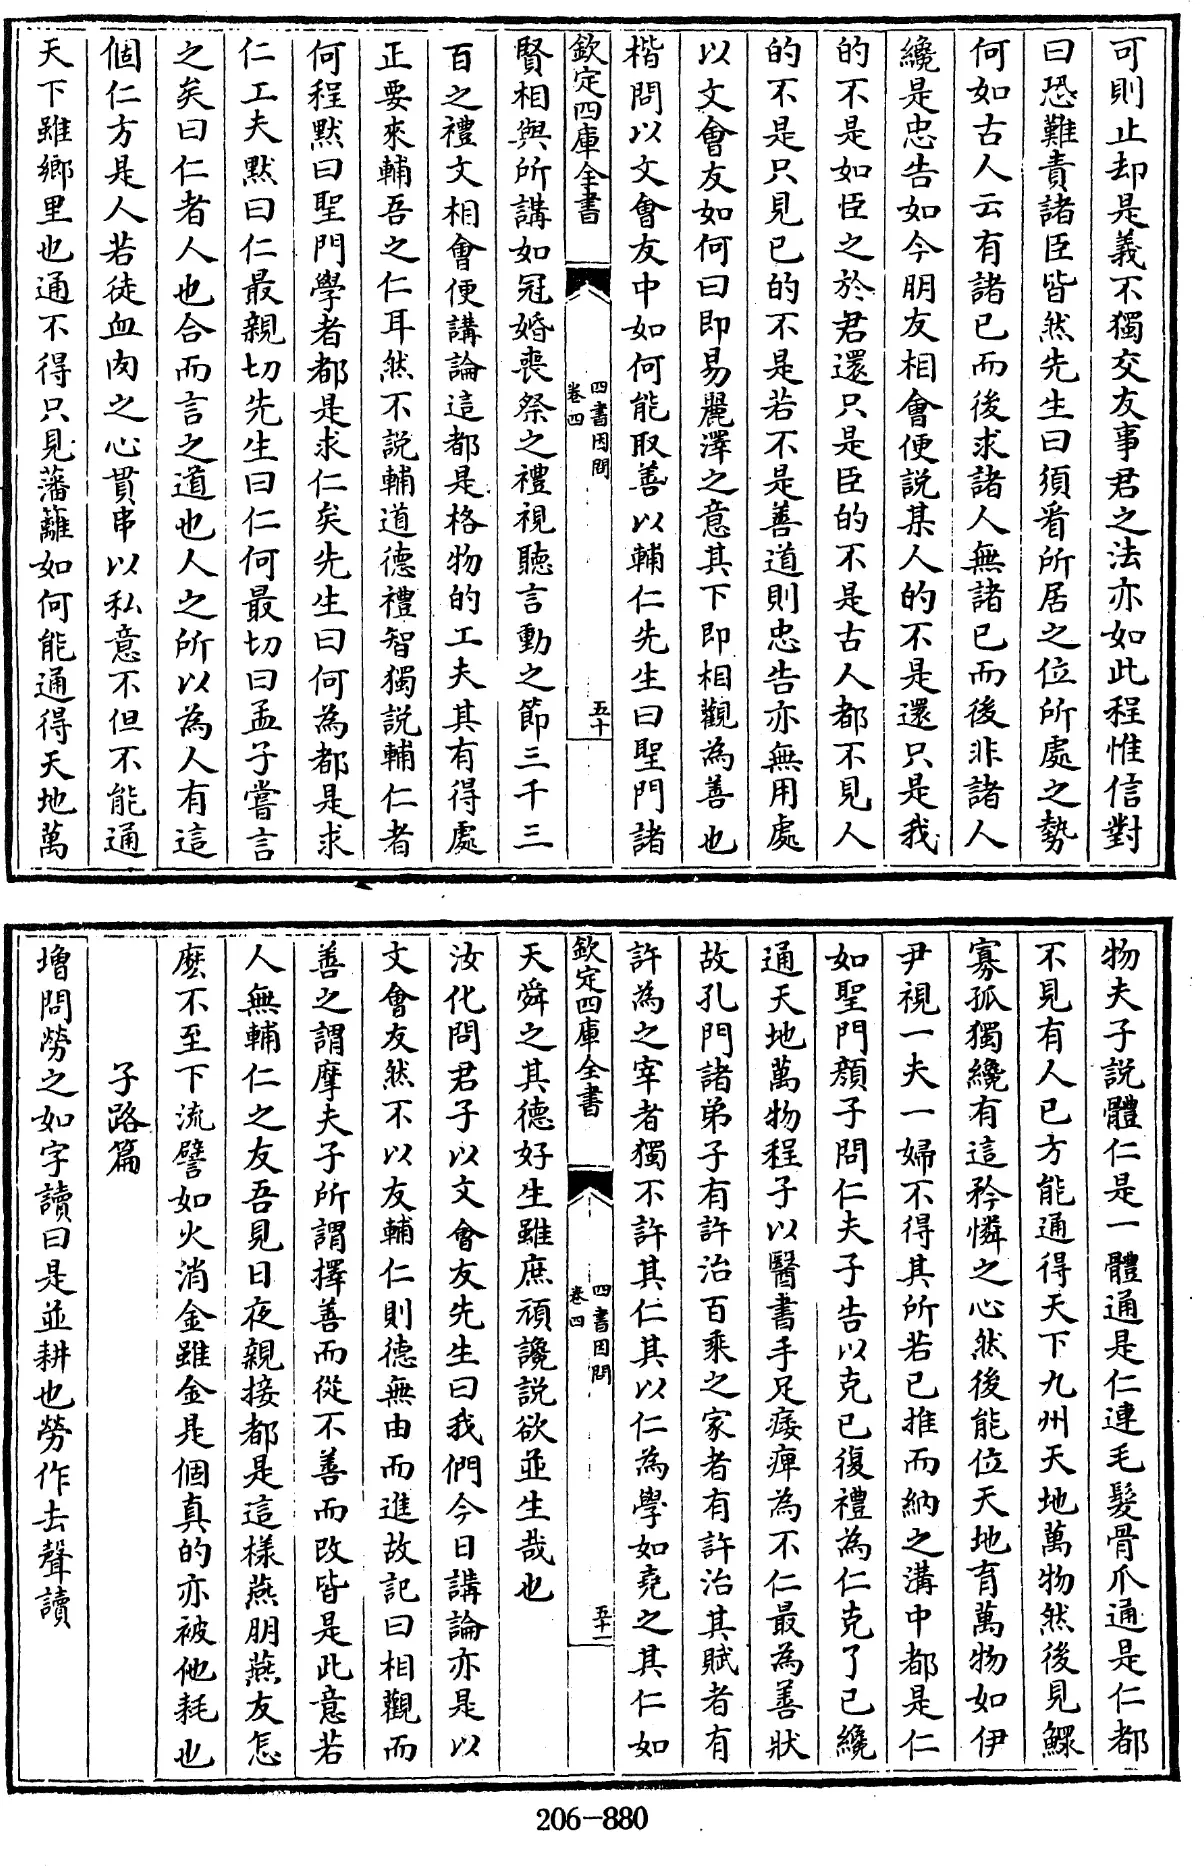 可則止却是義不獨交友事君之法亦如此程惟信對
曰恐難責諸臣皆然先生曰須看所居之位所處之勢
何如古人云有諸已而後求諸人無諸已而後非諸人
纔是忠告如今朋友相會便説某人的不是還只是我
的不是如臣之於君還只是臣的不是古人都不見人
的不是只見已的不是若不是善道則忠告亦無用處
以文會友如何曰即易麗澤之意其下即相觀為善也
楷問以文會友中如何能取善以輔仁先生曰聖門諸
欽定四庫全書
四書因問
卷四
五十
賢相與所講如冠婚喪祭之禮視聽言動之節三千三
百之禮文相會便講論這都是格物的工夫其有得處
正要來輔吾之仁耳然不説輔道德禮智獨説輔仁者
何程默曰聖門學者都是求仁矣先生曰何為都是求
仁工夫默曰仁最親切先生曰仁何最切曰孟子嘗言
之矣曰仁者人也合而言之道也人之所以為人有這
個仁方是人若徒血肉之心貫串以私意不但不能通
天下雖鄉里也通不得只見藩籬如何能通得天地萬
物夫子説體仁是一體通是仁連毛髮骨爪通是仁都
不見有人已方能通得天下九州天地萬物然後見鰥
寡孤獨纔有這矜憐之心然後能位天地育萬物如伊
尹視一夫一婦不得其所若已推而納之溝中都是仁
如聖門顏子問仁夫子告以克已復禮為仁克了已纔
通天地萬物程子以醫書手足痿痺為不仁最為善狀
故孔門諸弟子有許治百乘之家者有許治其賦者有
許為之宰者獨不許其仁其以仁為學如堯之其仁如
欽定四庫全書
四書因問
卷四
五十一
天舜之其德好生雖庶頑讒説欲並生哉也
汝化問君子以文會友先生曰我們今日講論亦是以
文會友然不以友輔仁則德無由而進故記曰相觀而
善之謂摩夫子所謂擇善而從不善而改皆是此意若
人無輔仁之友吾見日夜親接都是這樣燕朋燕友怎
麽不至下流譬如火消金雖金是個真的亦被他耗也
子路篇
増問勞之如字讀曰是並耕也勞作去聲讀
206-880